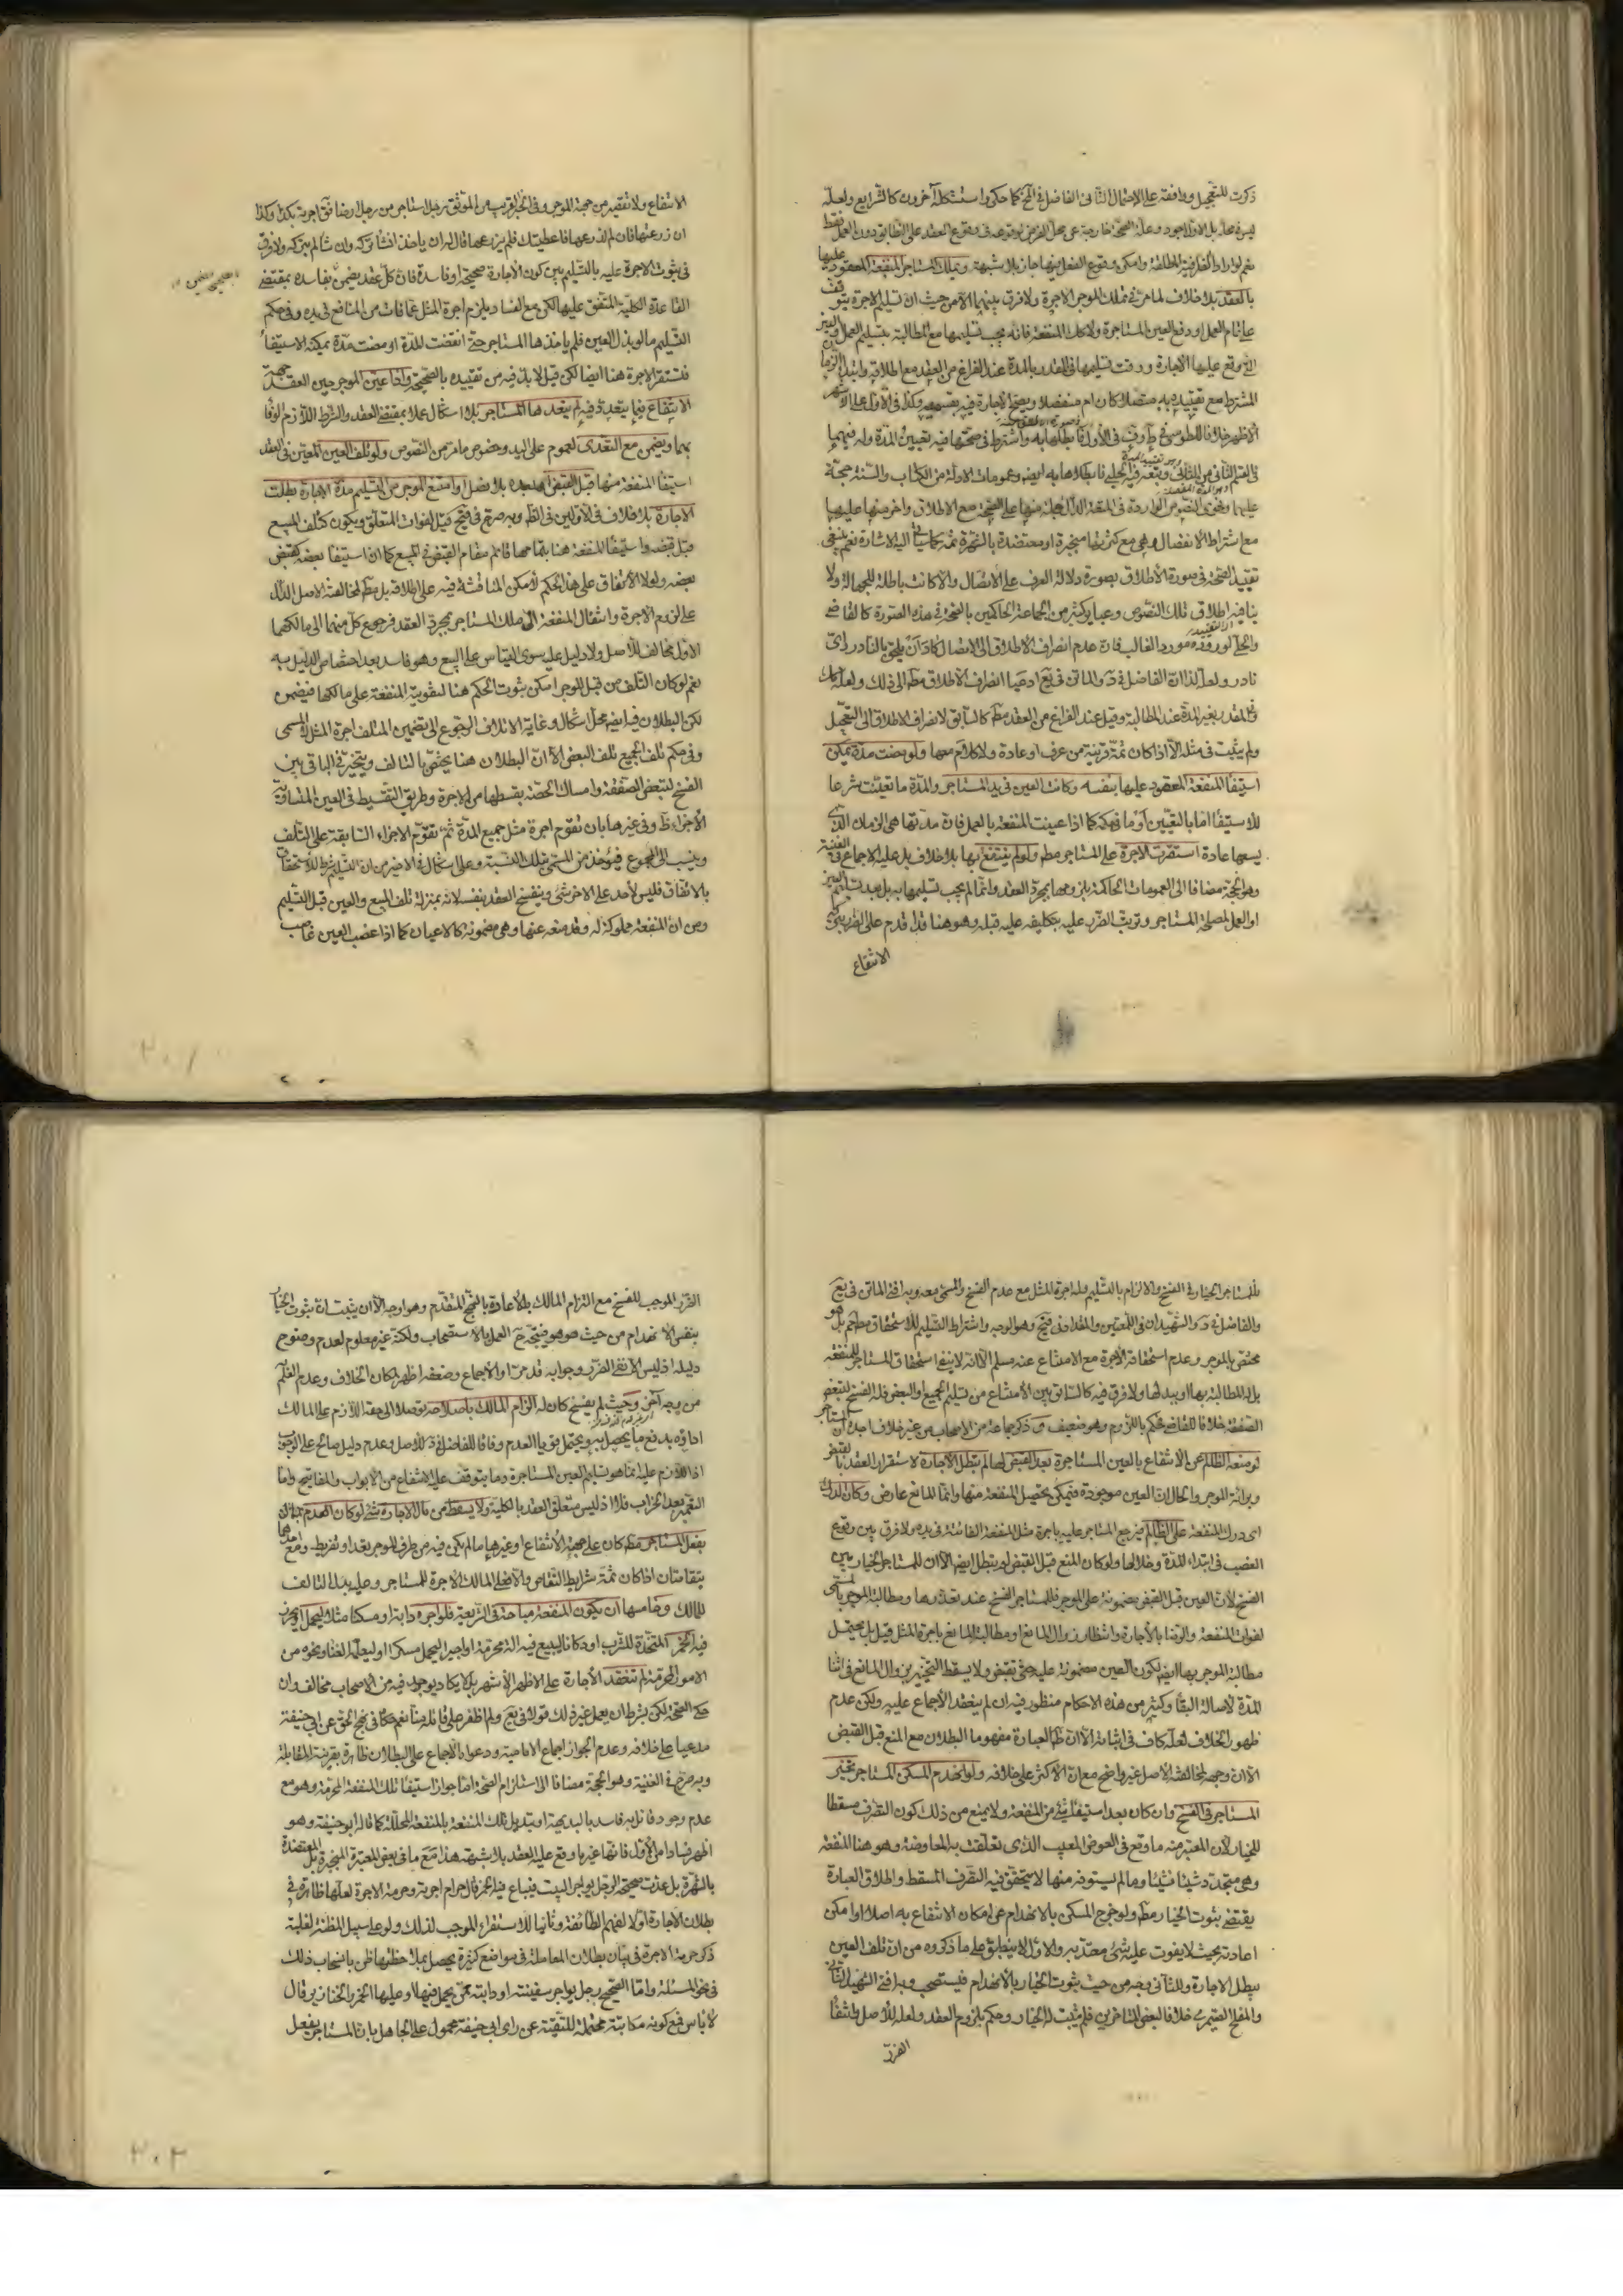 ذكرت للتعجيل ووافقه على الاحتمال الثاني الفاضل في كما حكي واستشكله آخرون كالشرايع ولعله
ليس في محله بل الاول اجود وعدم الصحة خارجة عن محل الفرض لوقوعه في وقوع العقد على التطابق دون العمل فقط
نعم لو اراد المطلقة وامكن وقوع الفعل فيها جاز بلا شبهة ويملك المستاجر المنفعة المعقود عليها
بالعقد بلا خلاف لما مر في تملك الموجر الاجرة ولا فرق بينهما الا من حيث ان تسليم الاجرة يتوقف
على تمام العمل او دفع العين المستاجرة ولا كك المنفعة فانه يجب تسليمها مع المطالبة بتسليم العمل والعين
التي وقع عليها الاجارة ووقت تسليمها في المقدر بالمدة عند الفراغ من العقد مع اطلاقه وابتداء الزمان
المشترط مع تقييده به متصلا كان ام منفصلا ويصح الاجارة فيه بقسميه وكذا في الاول على الاشهر
الاظهر خلافا للطوسي في وف في الاول فابطلها به واشترط في صحتها فيه تعيين المدة وله فيهما
في القسم الثاني من الثاني وتبعه فيه الحلي فابطلاها به ايضا وعمومات الادلة من الكتاب والسنة حجة
عليهما وفحوى النصوص الواردة في المتعة الدال جملة منها على الصحة مع الاطلاق واخر منها عليهما
مع اشتراط الانفصال وهي مع كثرتها منجبرة او معتضدة بالشهرة ثمة كما سياتي اليه الاشارة نعم ينبغي
تقييد الصحة في صورة الاطلاق بصورة دلالة العرف على الاتصال والا كانت باطلة للجهالة ولا
ينافيه اطلاق تلك النصوص وعبارة كثير من الجماعة الحاكمين بالصحة في هذه الصورة كالقاضي
والحلي لوروده مورد الغالب فان عدم انصراف الاطلاق الى الاتصال كاد ان يلحق بالنادر اي
نادر ولعله لذا ان الفاضل في د والماتن في يع ادعيا انصراف الاطلاق مطلقا الى ذلك ولعله كك
في المقدر بغير المدة عند المطالبة وقيل عند الفراغ من العقد مطلقا كالسابق لانصراف الاطلاق الى التعجيل
ولم يثبت في مثله الا اذا كان ثمة قرينة من عرف او عادة ولا كلام معها ولو مضت مدة يمكن
استيفاء المنفعة المعقود عليها بنفسه وكانت العين في يد المستاجر والمدة ما تعينت شرعا
للاستيفاء اما بالتعيين او ما في حكمه كما اذا عينت المنفعة بالعمل فان مدتها هي الزمان الذي
يسعها عادة استقرت الاجرة على المستاجر مطلقا ولو لم ينتفع بها بلا خلاف بل عليه الاجماع في الغنية
وهو الحجة مضافا الى العمومات الحاكمة بلزومها بمجرد العقد وانما لم يجب تسليمها به بل بعد تسليم العين
او العمل لمصلحة المستاجر وترتب الضرر عليه بتكليفه عليه قبله وهو هنا قد اقدم على الضرر بترك
الانتفاع
الانتفاع ولا تقصير من جهة الموجر وفي الخبر القريب من الموثق رجل استاجر من رجل ارضا فق اجرتها بكذا وكذا
ان زرعتها فان لم ازرعها فاعطيتك فلم يزرعها قال له ان ياخذ ان شاء تركه وان شاء لم يتركه ولا فرق
في ثبوت الاجرة عليه بالتسليم بين كون الاجارة صحيحة او فاسدة فان كل عقد يضمن بفاسده بمقتضى
القاعدة الكلية المتفق عليها لكن مع الفساد يلزم اجرة المثل عما فات من المنافع في يده وفي حكم
التسليم ما لو بذل العين فلم ياخذها المستاجر حتى انقضت المدة او مضت مدة يمكنه الاستيفاء
فتستقر الاجرة هنا ايضا لكن قيل لا بد فيه من تقييده بالصحيحة واذا عين الموجر حين العقد جهة
الانتفاع فيما يتعدد فيه لم يتعدها المستاجر بلا اشكال عملا بمقتضى العقد والشرط اللازم الوفاء
بهما ويضمن مع التعدي لعموم على اليد وخصوص ما مر من النصوص ولو تلف العين المعين في العقد
استيفاء المنفعة منها قبل القبض او بعده بلا فصل او امتنع الموجر من التسليم مدة الاجارة بطلت
الاجارة بلا خلاف في الاولين في الظاهر وبه صرح في فتح قيل لفوات المتعلق ويكون كتلف المبيع
قبل قبضه واستيفاء المنفعة هنا بتمامها قائم مقام القبض في المبيع كما ان استيفاء بعضه كقبض
بعضه ولولا الاتفاق على هذا الحكم لامكن المناقشة فيه على اطلاقه بل مطلقا لمخالفته الاصل الدال
على لزوم الاجرة وانتقال المنفعة الى ملك المستاجر بمجرد العقد فرجوع كل منهما الى مالكهما
الاول مخالف للاصل ولا دليل عليه سوى القياس على البيع وهو فاسد بعد اختصاص الدليل به
نعم لو كان التلف من قبل الموجر امكن ثبوت الحكم هنا لتفويته المنفعة على مالكها فيضمن
لكن البطلان فيه ايضا محل اشكال وغاية الاتلاف الرجوع الى تضمين المتلف اجرة المثل لا المسمى
وفي حكم تلف الجميع تلف البعض الا ان البطلان هنا يختص بالتالف ويتخير في الباقي بين
الفسخ لتبعض الصفقة وامساك الحصة بقسطها من الاجرة وطريق التقسيط في العين المتساوية
الاجزاء ظ وفي غيرها بان تقوم اجرة مثل جميع المدة ثم تقوم الاجزاء السابقة على التلف
وينسب الى المجموع فيؤخذ من المسمى بتلك النسبة وعلى اشكال في الاخير من ان التسليم شرط للاستحقاق
بالاتفاق فليس لأحد على الاخر شيء وينفسخ العقد بنفسه لانه بمنزلة تلف المبيع والعين قبل التسليم
ومن ان المنفعة مملوكة له وقد منعه عنها وهي مضمونة كالاعيان كما اذا غصب العين غاصب
فللمستاجر الخيار في الفسخ والالزام بالتسليم وله اجرة المثل مع عدم الفسخ والمسمى معه وبه افتى الماتن في يع
والفاضل في د والشهيدان في اللمعتين والمقداد في فتح وهو الوجه واشتراط التسليم للاستحقاق مطلقا مم بل هو
مختص بالموجر وعدم استحقاقه الاجرة مع الامتناع عنه مسلم الا انه لا ينفي استحقاق المستاجر للمنفعة
بل له المطالبة بها او ببدلها ولا فرق فيه كالسابق بين الامتناع من تسليم الجميع او البعض فله الفسخ لتبعض
الصفقة خلافا للقاضي فحكم باللزوم وهو ضعيف وذكر جماعة من الاصحاب من غير خلاف اجده ان المستاجر
لو منعه الظالم عن الانتفاع بالعين المستاجرة بعد القبض لها لم تبطل الاجارة لاستقرار العقد بالقبض
وبراءة الموجر والحال ان العين موجودة فيمكن تحصيل المنفعة منها وانما المانع عارض وكان الدرك
اي درك المنفعة على الظالم فيرجع المستاجر عليه باجرة مثل المنفعة الفائتة في يده ولا فرق بين وقوع
الغصب في ابتداء المدة وخلالها ولو كان المنع قبل القبض لم تبطل ايضا الا ان للمستاجر الخيار بين
الفسخ لان العين قبل القبض مضمونة على الموجر فللمستاجر الفسخ عند تعذرها ومطالبة الموجر بالمسمى
لفوات المنفعة والرضا بالاجارة وانتظار زوال المانع او مطالبة المانع باجرة المثل قيل بل يحتمل
مطالبة الموجر بها ايضا لكون العين مضمونة عليه حتى تقبض ولا يسقط التخيير بزوال المانع في اثناء
المدة لاصالة البقاء وكثير من هذه الاحكام منظور فيه ان لم ينعقد الاجماع عليه ولكن عدم
ظهور الخلاف لعله كاف في اثباته الا ان ظ العبارة مفهوما البطلان مع المنع قبل القبض
الا ان وجهه لمخالفته الاصل غير واضح مع ان الاكثر على خلافه ولو انهدم المسكن المستاجر تخير
المستاجر في الفسخ وان كان بعد استيفاء شيء من المنفعة ولا يمنع من ذلك كون التصرف مسقطا
للخيار لان المعتبر منه ما وقع في العوض المعيب الذي تعلقت به المعاوضة وهو هنا المنفعة
وهي متجدد شيئا فشيئا وما لم يستوفه منها لا يتحقق فيه التصرف المسقط واطلاق العبارة
يقتضي ثبوت الخيار مطلقا ولو خرج المسكن بالانهدام عن امكان الانتفاع به اصلا او امكن
اعادته بحيث لا يفوت عليه شيء معتد به والاول لا ينطبق على ما ذكروه من ان تلف العين
يبطل الاجارة وللثاني وجه من حيث ثبوت الخيار بالانهدام فيستصحب وبه افتى الشهيد الثاني
والمفلح الصيمري خلافا لبعض المتاخرين فلم يثبت له الخيار وحكم بلزوم العقد ولعله للاصل وانتفاء
الضرر
الضرر الموجب للفسخ مع التزام المالك بالاعادة بالنهج المتقدم وهو اوجه الا ان يثبت ان ثبوت الخيار
بنفس الانهدام من حيث هو هو فيتجه ح العمل بالاستصحاب ولكنه غير معلوم لعدم وضوح
دليله اذ ليس الا نفي الضرر وجوابه قد مر او الاجماع وضعفه اظهر لمكان الخلاف وعدم العلم
من وجه آخر وحيث لم يفسخ كان له الزام المالك باصلاحه توصلا الى حقه اللازم على المالك
اداؤه بدفع ما يحصل به ويحتمل قويا العدم وفاقا للفاضل في د للاصل وعدم دليل صالح على الوجوب
اذ اللازم عليه انما هو تسليم العين المستاجرة وما يتوقف عليه الانتفاع من الابواب والمفاتيح واما
التعمير بعد الخراب فلا اذ ليس متعلق العقد بالكلية ولا يسقط من مال الاجارة شيء لو كان الهدم
بفعل المستاجر مطلقا كان على جهة الانتفاع او غيرها ما لم يكن فيه من طرف الموجر تعد او تفريط ومع احدهما
يتقاصان اذا كان ثمة شرايط التقاص والا فعلى المالك الاجرة للمستاجر وعليه بدل التالف
للمالك وخامسها ان يكون المنفعة مباحة في الشريعة فلو اجره دابة او مسكنا مثلا ليحمل او يحرز
فيه الخمر المتخذة للشرب او دكانا ليبيع فيه الة محرمة او اجيرا ليحمل مسكرا او ليعلمه الغناء ونحوه من
الامور المحرمة لم تنعقد الاجارة على الاظهر الاشهر بل لا يكاد يوجد فيه من الاصحاب مخالف وان
حكى الصحة لكن بشرط ان يعمل غير ذلك قولا في يع ولم اظفر على قائله منا نعم حكاه في نهج الحق عن ابي حنيفة
مدعيا على خلافه وعدم الجواز اجماع الامامية ودعواه الاجماع على البطلان ظاهرة بقرينة المقابلة
وبه صرح في الغنية وهو الحجة مضافا الى استلزام الصحة اما جواز استيفاء تلك المنفعة المحرمة وهو مع
عدم وجود قائل به فاسد بالبديهة او تبديل تلك المنفعة بالمنفعة المحللة كما قاله ابو حنيفة وهو
اظهر فسادا من الاول فانها غير ما وقع عليه العقد بلا شبهة هذا مع ما في بعض المعتبرة المنجبرة بل المعتضدة
بالشهرة بل عدت صحيحة الرجل يواجر البيت فيباع فيه الخمر قال حرام اجرته وحرمة الاجرة لعلها ظاهرة في
بطلان الاجارة اولا لفهم الطائفة وثانيا للاستقراء الموجب لذلك ولو على سبيل المظنة لغلبة
ذكر حرمة الاجرة في بيان بطلان المعاملة في مواضع كثيرة يحصل بملاحظتها ظن بانسحاب ذلك
في نحو المسئلة واما الصحيح رجل يواجر سفينته او دابته ممن يحمل فيها او عليها الخمر والخنازير قال
لا باس فمع كونه مكاتبة محتملة للتقية عن راي ابي حنيفة محمول على الجاهل بان المستاجر يفعل